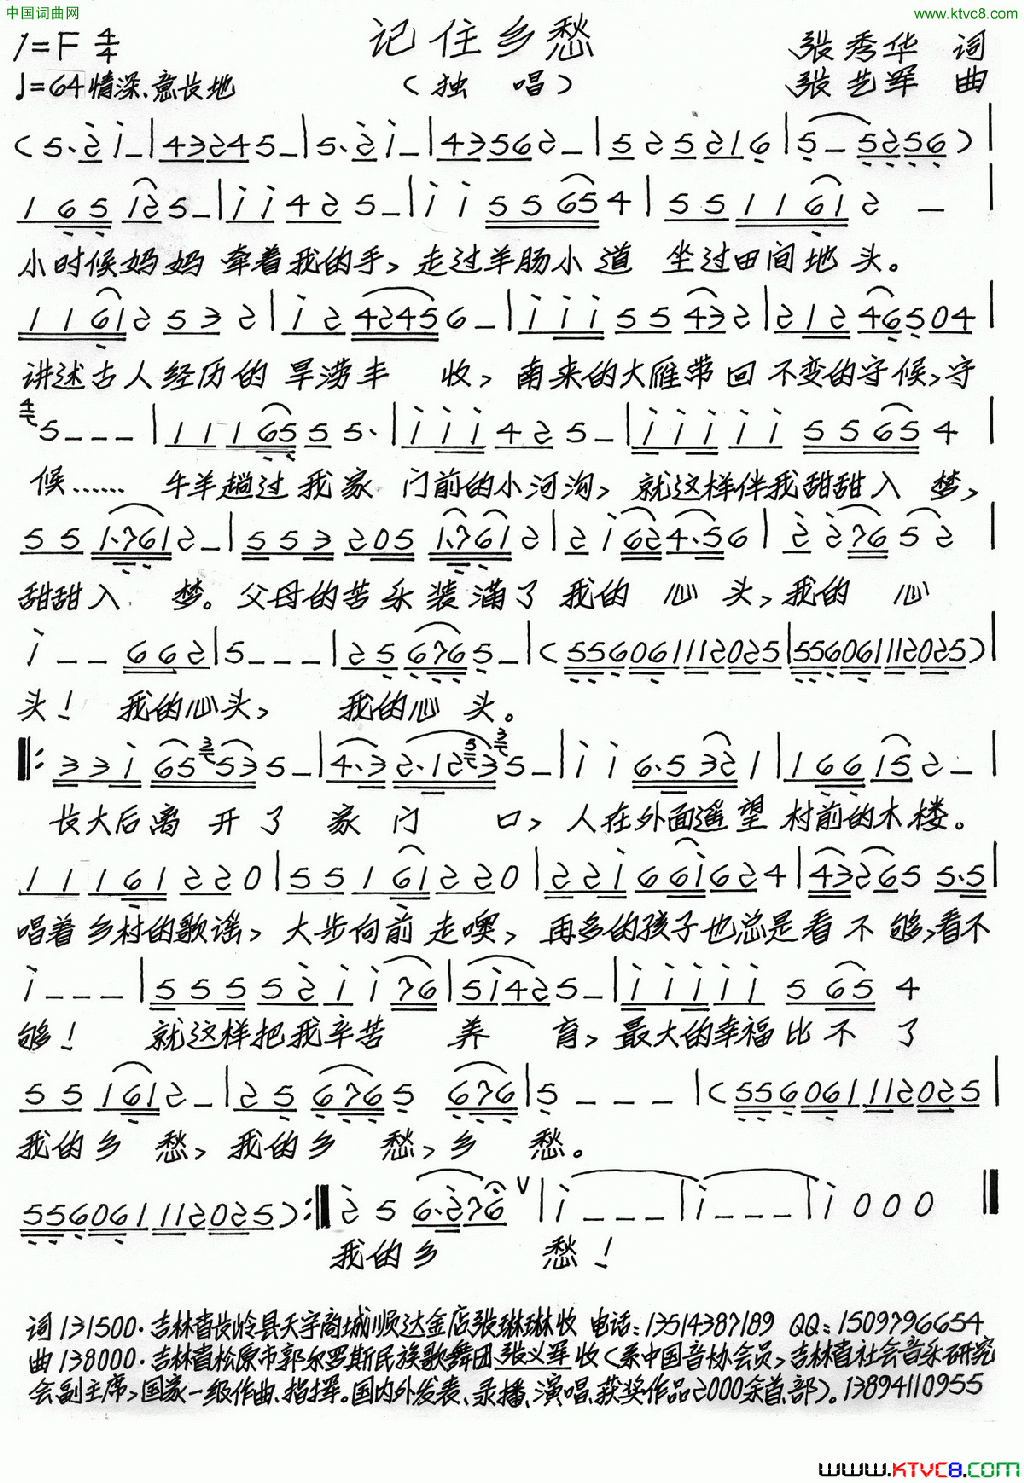 中国词曲网
www.ktvc8.com
1=F 4/4
记住乡愁
张秀华 词
♩=64 情深、意长地
（独 唱）
张艺军 曲
(5·2i-|43245-|5·2i-|43562-|5252i6|5-5256)|
165i25-|ii425-|ii55654|5511612-
小时候妈妈牵着我的手，走过羊肠小道 坐过田间地头。
11612532|i242456-|iii55432|21246504|
讲述古人经历的旱涝丰 收，南来的大雁带回不变的守候，守
5---|1116555·|iii425-|iiiii55654|
候…… 牛羊趟过我家 门前的小河沟，就这样伴我甜甜入 梦，
551·7612-|5532051·7612|2i624·56|227652|
甜甜入 梦。父母的苦乐装满了 我的 心 头，我的 心
i--662|5---|256765-|(556061112025|556061112025)|
头！ 我的心头， 我的心 头。
长大后离 开了 家 门 口，人在外面遥望 村前的木楼。
唱着乡村的歌谣，大步向前 走噢，再多的孩子也总是看不 够，看不
够！ 就这样把我辛苦 养 育，最大的幸福比不了
551612-|2567656765|5---|(556061112025|
我的乡 愁，我的乡 愁，乡 愁。
556061112025):‖256·276|i---|i---|i000‖
我的乡 愁！
词131500·吉林省长岭县天宇商城顺达金店张琳琳收 电话：13514387189 QQ：1509796654
曲138000·吉林省松原市郭尔罗斯民族歌舞团，张义军收（系中国音协会员，吉林省社会音乐研究
会副主席，国家一级作曲、指挥。国内外发表、录播、演唱、获奖作品2000余首、部）。13894110955
www.KTVC8.com